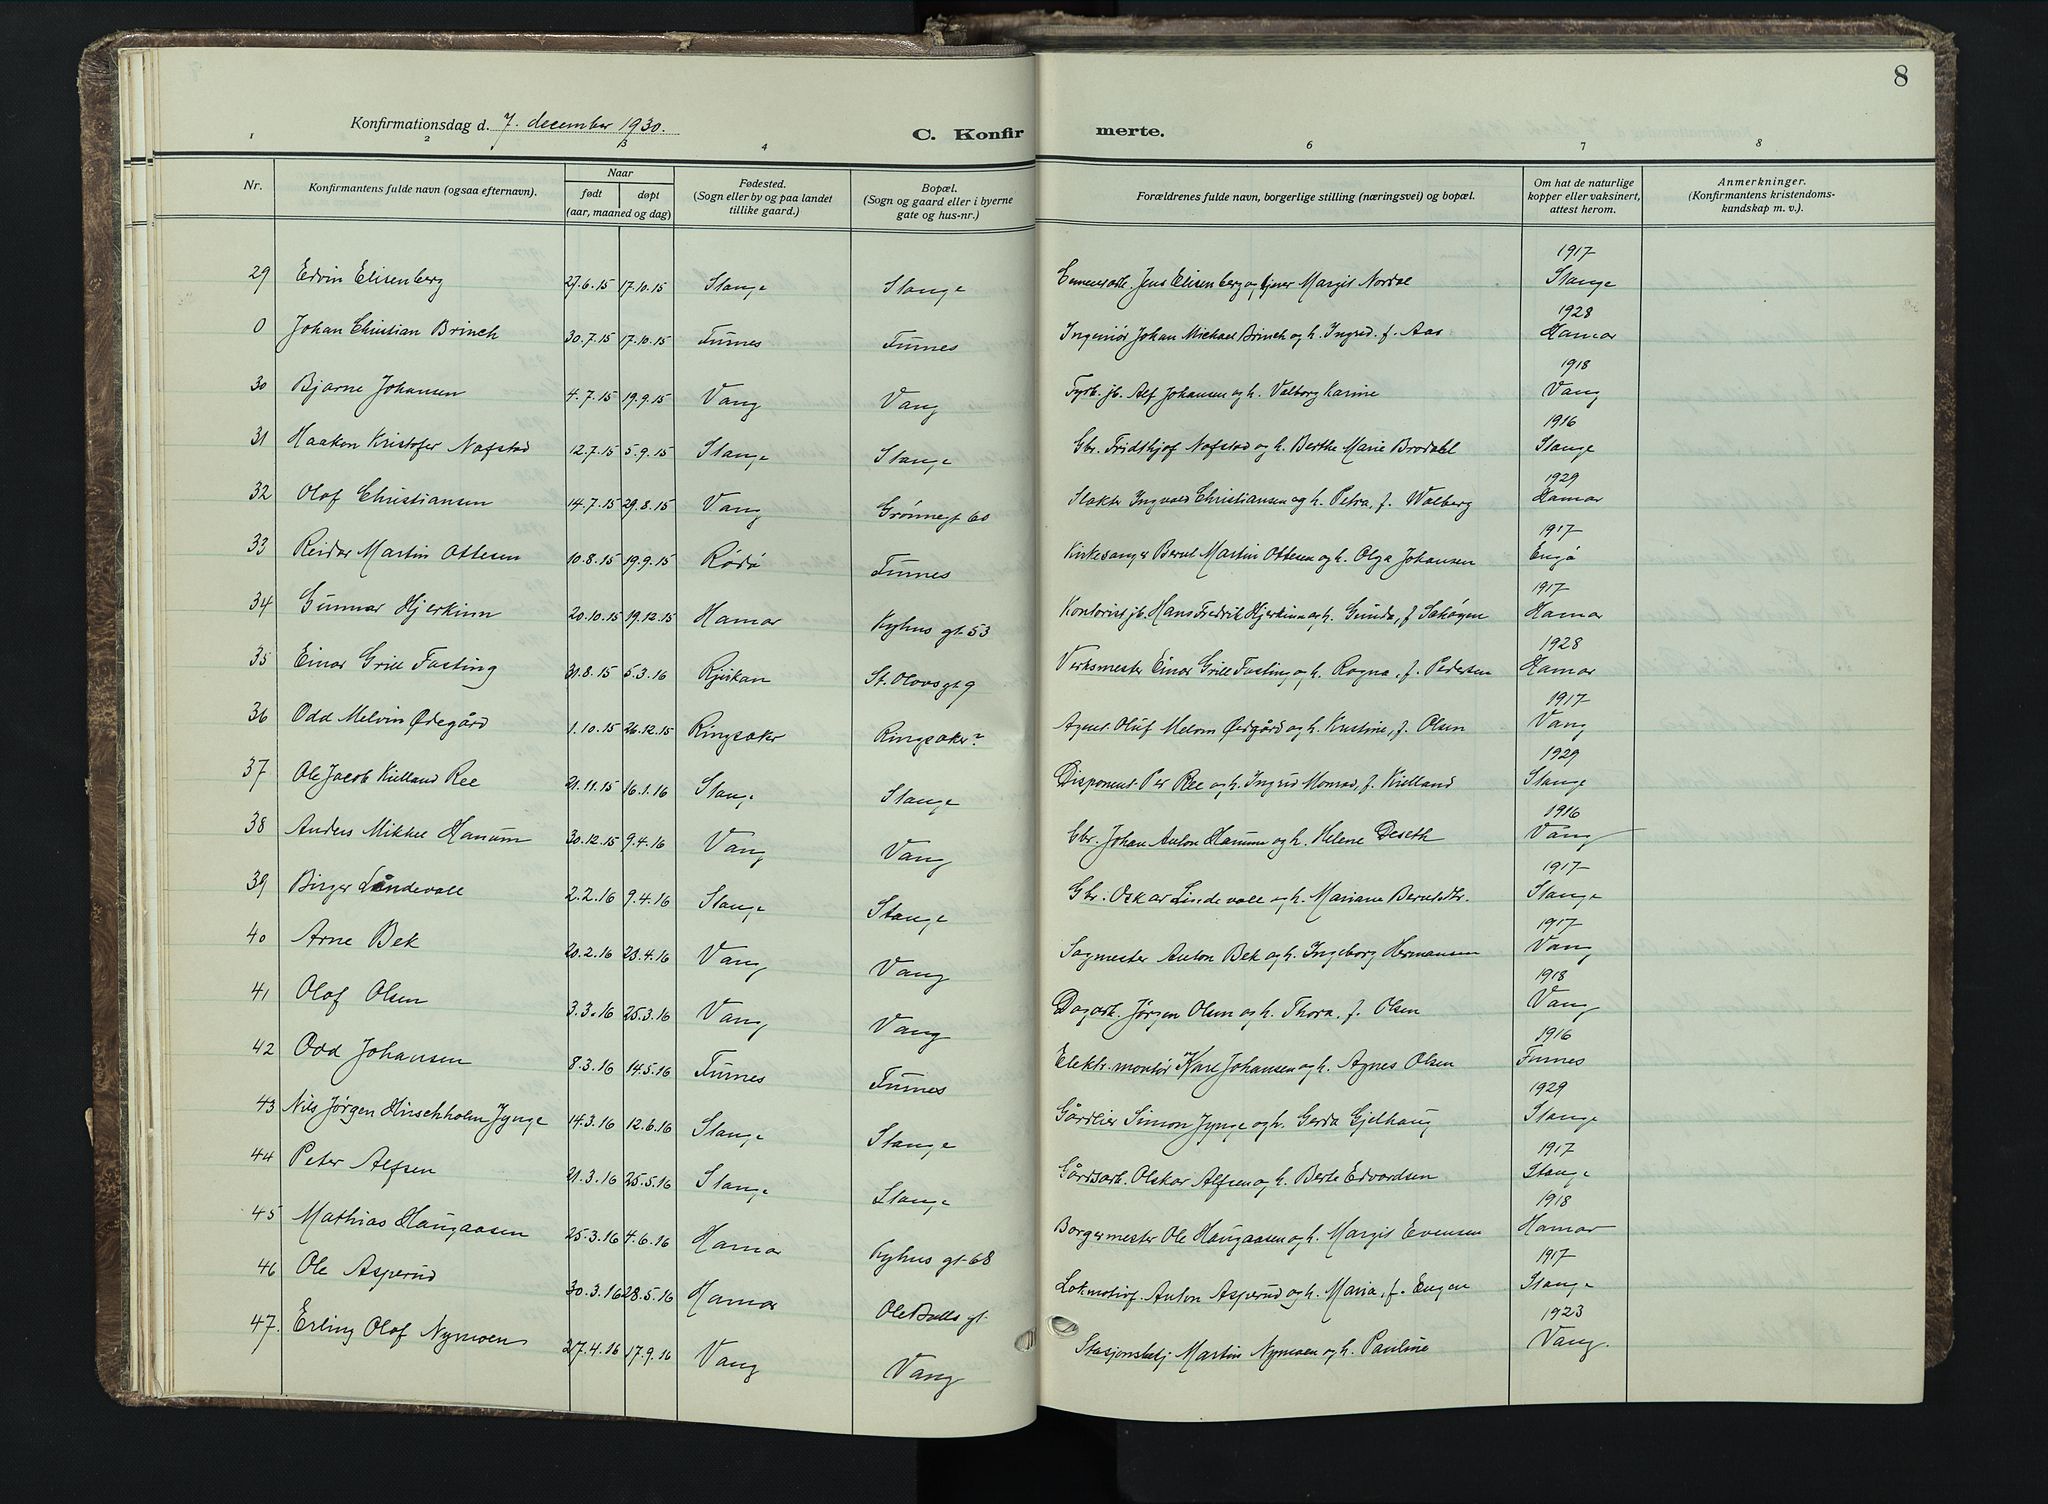 8
Konfirmationsdag d. 7. december 1930.
C. Konfir merte.
1 2 3 4 6 7 8
Nr.
Konfirmantens fulde navn (ogsaa efternavn).
Naar
født
døpt
(aar, maaned og dag)
Fødested.
(Sogn eller by og paa landet
tillike gaard.)
Bopæl.
(Sogn og gaard eller i byerne
gate og hus-nr.)
Forældrenes fulde navn, borgerlige stilling (næringsvei) og bopæl.
Om hat de naturlige
kopper eller vaksinert,
attest herom.
Anmerkninger.
(Konfirmantens kristendoms-
kundskap m. v.).
29 Edvin Elisenberg 27.6.15 17.10.15 Stange Stange Jens Elisenberg og Margit Nordal 1917 Stange
0 Johan Christian Brinch 30.7.15 17.10.15 Furnes Furnes Ingeniør Johan Michael Brinch og h. Ingrid f. Aas 1928 Hamar
30 Bjarne Johansen 4.7.15 19.9.15 Vang Vang Fyrb. jb. Alf Johansen og h. Valborg Karine 1918 Vang
31 Haakon Kristofer Nafstad 12.7.15 5.9.15 Stange Stange Gbr. Fridthjof Nafstad og h. Berthe Marie Brodahl 1916 Stange
32 Olaf Christiansen 14.7.15 29.8.15 Vang Grønnegt 60 Slakter Ingvald Christiansen og h. Petra, f. Walberg 1929 Hamar
33 Reidar Martin Ottesen 10.8.15 19.9.15 Rødø Furnes Kirkesanger Bernt Martin Ottesen og h. Olga Johansen 1917 Engø
34 Gunnar Hjerkinn 20.10.15 19.12.15 Hamar Kyhus gt. 53 Kontorist jb. Hans Fredrik Hjerkinn og h. Gunda, f 1917 Hamar
35 Einar Grill Fasting 31.8.15 5.3.16 Rjukan St. Olavsgt 9 Verksmester Einar Grill Fasting og h. Ragna, f. Pedersen 1928 Hamar
36 Odd Melvin Ødegård 1.10.15 26.12.15 Ringsaker Ringsaker? Agent Oluf Melvin Ødegård og h. Kristine, f. Olsen 1917 Vang
37 Ole Jacob Kielland Ree 21.11.15 16.1.16 Stange Stange Disponent Per Ree og h. Ingrid Monrad, f. Kielland 1929 Stange
38 Anders Mikkel Hanum 30.12.15 9.4.16 Vang Vang Gbr. Johan Anton Hanum og h. Helene Deseth 1916 Vang
39 Birger Lindevall 2.2.16 9.4.16 Stange Stange Gbr. Oskar Lindevall og h. Mariane Berntsdtr. 1917 Stange
40 Arne Bek 20.2.16 23.4.16 Vang Vang Sagmester Anton Bek og h. Ingeborg Hermansen 1917 Vang
41 Olaf Olsen 3.3.16 25.3.16 Vang Vang Dagarb. Jørgen Olsen og h. Thora, f. Olsen 1918 Vang
42 Odd Johansen 8.3.16 14.5.16 Furnes Furnes Elektr. montør Karl Johansen og h. Agnes Olsen 1916 Furnes
43 Nils Jørgen Hirschholm Jynge 14.3.16 12.6.16 Stange Stange Gårdeier Simon Jynge og h. Gerda Gjelhaug 1929 Stange
44 Peter Alfsen 21.3.16 25.5.16 Stange Stange Gårdsarb. Olskar Alfsen og h. Berte Edvardsen 1917 Stange
45 Mathias Haugaasen 25.3.16 4.6.16 Hamar Kyhus gt. 68 Borgermester Ole Haugaasen og h. Margit Evensen 1918 Hamar
46 Ole Asperud 30.3.16 28.5.16 Hamar Ole Bulls gt. Lokomotivf. Anton Asperud og h. Maria, f. Engen 1917 Stange
47. Erling Olaf Nymoen 27.4.16 17.9.16 Vang Vang Stasjonsbetj Martin Nymoen og h. Pauline 1923 Vang.